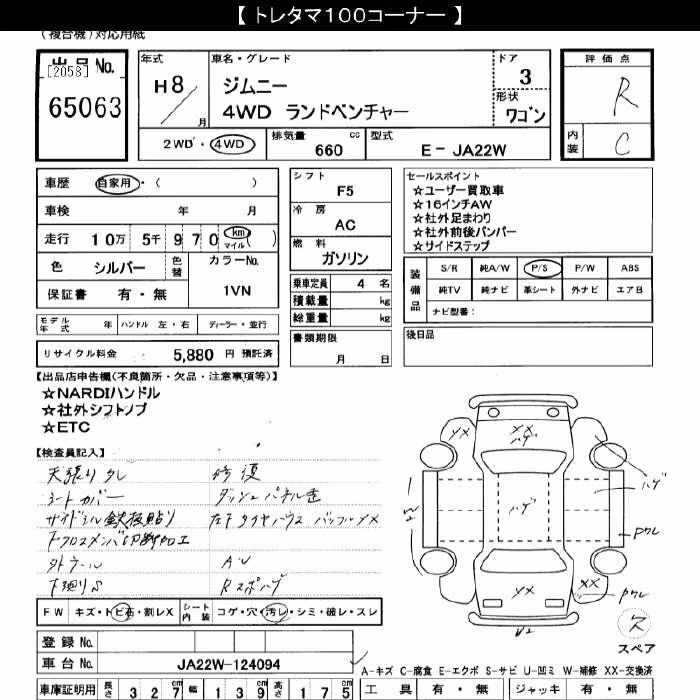 【 トレタマ100コーナー 】
(複合機)対応用紙
出品No.
[2058]
65063
年式
H8
月
車名・グレード
ジムニー
4WD ランドベンチャー
ドア
3
形状
ワゴン
評価点
R
内装
C
2WD・4WD
排気量 cc
660
型式
E- JA22W
車歴 自家用・( )
車検 年 月
走行 10万 5千 970 km マイル ( )
色 シルバー 色替 カラーNo.
保証書 有・無 1VN
モデル年式 年 ハンドル 左・右 ディーラー・並行
リサイクル料金 5,880 円 預託済
シフト
F5
冷房
AC
燃料
ガソリン
乗車定員 4 名
積載量 kg
総重量 kg
書類期限
月 日
セールスポイント
☆ユーザー買取車
☆16インチAW
☆社外足まわり
☆社外前後バンパー
☆サイドステップ
装備品
S/R 純A/W P/S P/W ABS
純TV 純ナビ 革シート 外ナビ エアB
ナビ型番:
後日品
【出品店申告欄(不良箇所・欠品・注意事項等)】
☆NARDIハンドル
☆社外シフトノブ
☆ETC
【検査員記入】
天張りタレ 修復
シートカバー
サイドシル鉄板貼り
下廻りS
FW キズ・トビ石・割レX シート内装 コゲ・穴・汚レ・シミ・破レ・スレ
登録 No.
車台 No. JA22W-124094
車庫証明用 長さ 327 cm 幅 139 cm 高さ 175 cm
XX
XX
ハゲ
ハゲ
ハゲ
XX
XX
U2
スペア
A-キズ C-腐食 E-エクボ S-サビ U-凹ミ W-補修 XX-交換済
工具 有・無 ジャッキ 有・無